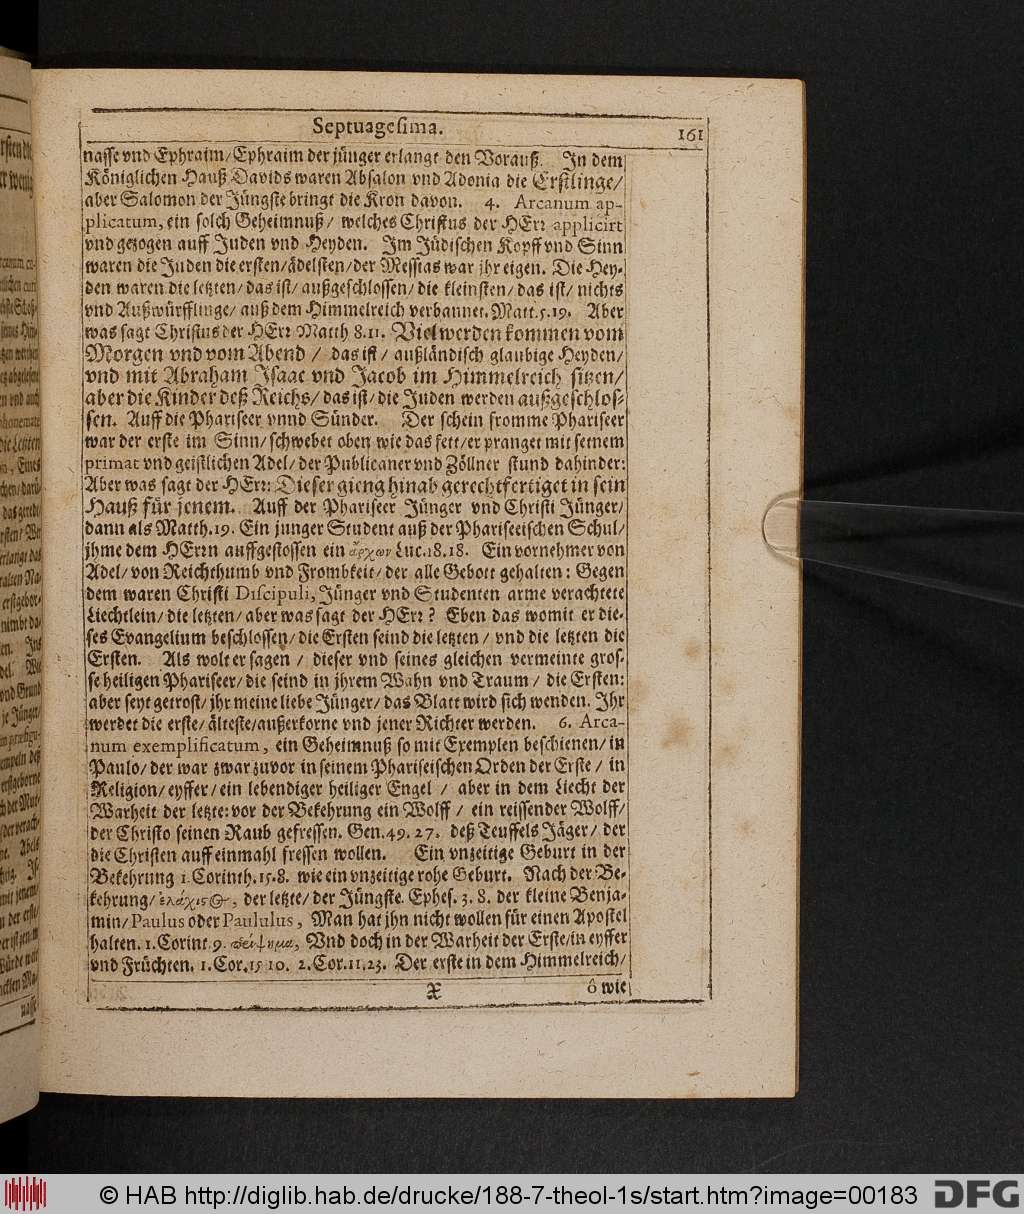 Septuagesima. 161
nasse vnd Ephraim/Ephraim der jünger erlangt den Vorauß. In dem
Königlichen Hauß Davids waren Absalon vnd Adonia die Erstlinge/
aber Salomon der Jüngste bringt die Kron davon. 4. Arcanum ap-
plicatum, ein solch Geheimnuß/ welches Christus der HErr applicirt
vnd gezogen auff Juden vnd Heyden. Im Jüdischen Kopff vnd Sinn
waren die Juden die ersten/ädelsten/der Messias war jhr eigen. Die Hey-
den waren die letzten/das ist/ außgeschlossen/die kleinsten/das ist/ nichts
vnd Außwürfflinge/ auß dem Himmelreich verbannet. Matt. 5.19. Aber
was sagt Christus der HErr Matth 8.11. Viel werden kommen vom
Morgen vnd vom Abend / das ist/ außländisch glaubige Heyden/
vnd mit Abraham Isaac vnd Jacob im Himmelreich sitzen/
aber die Kinder deß Reichs/das ist/die Juden werden außgeschlos-
sen. Auff die Phariseer vnnd Sünder. Der schein fromme Phariseer
war der erste im Sinn/schwebet oben wie das fett/er pranget mit seinem
primat vnd geistlichen Adel/der Publicaner vnd Zöllner stund dahinder:
Aber was sagt der HErr: Dieser gieng hinab gerechtfertiget in sein
Hauß für jenem. Auff der Phariseer Jünger vnd Christi Jünger/
dann als Matth. 19. Ein junger Student auß der Phariseeischen Schul/
jhme dem HErrn auffgestossen ein ἄρχων Luc. 18.18. Ein vornehmer von
Adel/von Reichthumb vnd Frombkeit/der alle Gebott gehalten: Gegen
dem waren Christi Discipuli, Jünger vnd Studenten arme verachtete
Liechtlein/die letzten/aber was sagt der HErr? Eben das womit er die-
ses Evangelium beschlossen/die Ersten seind die letzten/ vnd die letzten die
Ersten. Als wolt er sagen / dieser vnd seines gleichen vermeinte gros-
se heiligen Phariseer/die seind in jhrem Wahn vnd Traum / die Ersten:
aber seyt getrost/jhr meine liebe Jünger/das Blatt wird sich wenden. Ihr
werdet die erste/älteste/außerkorne vnd jener Richter werden. 6. Arca-
num exemplificatum, ein Geheimnuß so mit Exemplen beschienen/in
Paulo/der war zwar zuvor in seinem Phariseischen Orden der Erste/ in
Religion/eyffer/ein lebendiger heiliger Engel / aber in dem Liecht der
Warheit der letzte: vor der Bekehrung ein Wolff / ein reissender Wolff/
der Christo seinen Raub gefressen. Gen. 49. 27. deß Teuffels Jäger/ der
die Christen auff einmahl fressen wollen. Ein vnzeitige Geburt in der
Bekehrung 1. Corinth. 15.8. wie ein vnzeitige rohe Geburt. Nach der Be-
kehrung/ ἐλάχιστος, der letzte/ der Jüngste. Ephes. 3. 8. der kleine Benja-
min/ Paulus oder Paululus, Man hat jhn nicht wollen für einen Apostel
halten. 1. Corint. 9. Vnd doch in der Warheit der Erste/in eyffer
vnd Früchten. 1. Cor. 15 10. 2. Cor. 11. 23. Der erste in dem Himmelreich/
X ô wie
© HAB http://diglib.hab.de/drucke/188-7-theol-1s/start.htm?image=00183 DFG